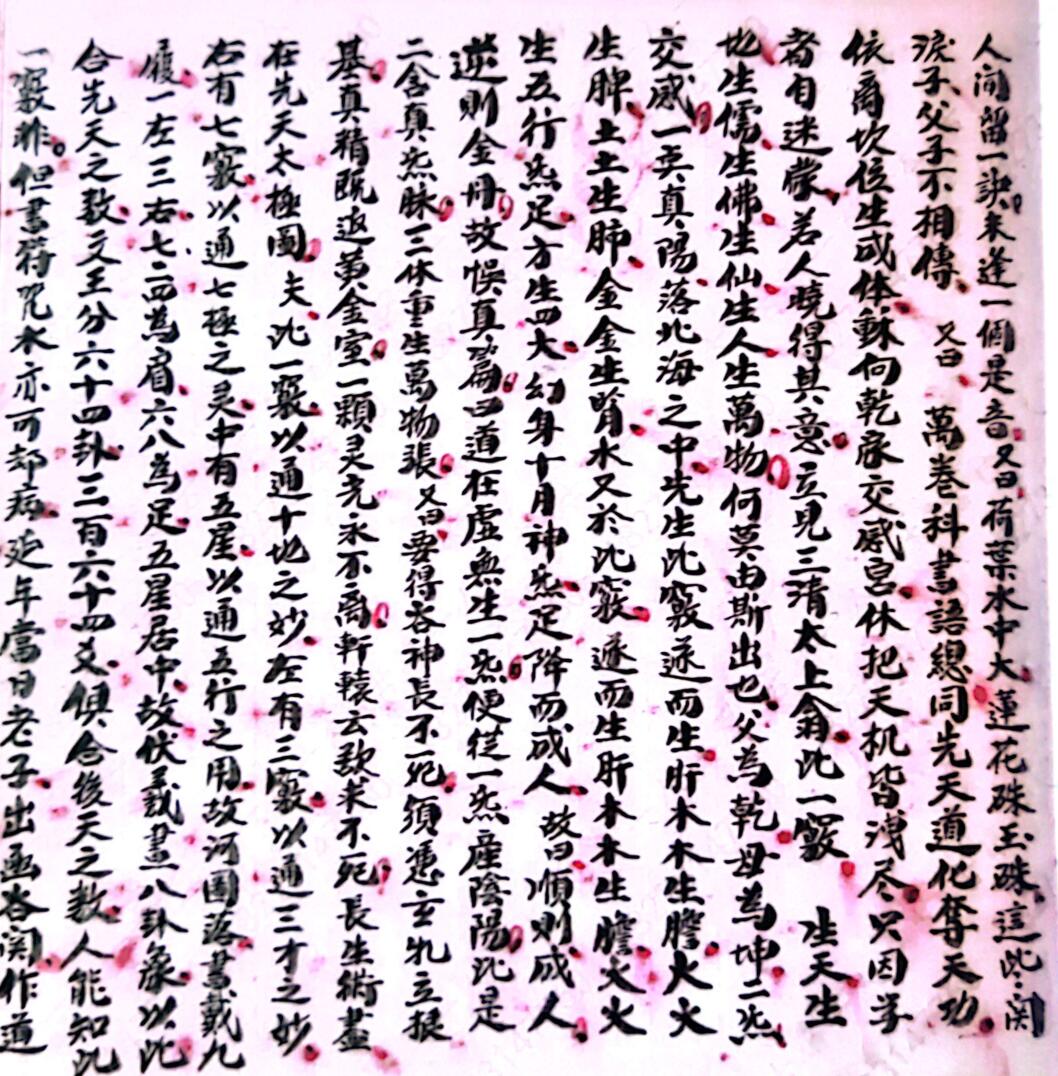 人间留一訣未逢一個是音又曰荷葉水中大蓮花珠玉珠這些関
淚子父子不相傳 又曰 萬卷科書語總同先天道化奪天功
依离坎位生成体 向乾家交感宫休把天机皆洩尽只因学
者自迷蒙若人曉得其意立見三清太上翁此一竅 生天生
地生儒生佛生仙生人生萬物何莫由斯出也父為乾母為坤二炁
交感一真陽落北海之中先生此竅遂而生肝木木生膽火火
生脾土土生肺金金生肾水又於此竅遂而生肝木木生膽火火
生五行炁足方生四大幻身十月神炁足降而成人 故曰順則成人
逆則金丹故悞真篇曰道在虛無生一炁便從一炁産陰陽此是
二含真炁脉三体重生萬物張又曰要得谷神長不死須憑玄牝立根
基真精既返黄金室一顆灵光永不离軒轅云欲求不死長生術盡
在先天太極圖 夫此一竅以通十地之妙左有三竅以通三才之妙
右有七竅以通七極之灵中有五星以通五行之用故河圖落書戴九
履一左三右七二四為肩六八為足五星居中故伏羲畫八卦象以此
合先天之数文王分六十四卦三百六十四爻俱合後天之数人能知此
一竅非但書符咒水亦可却病延年當日老子出函谷関作道